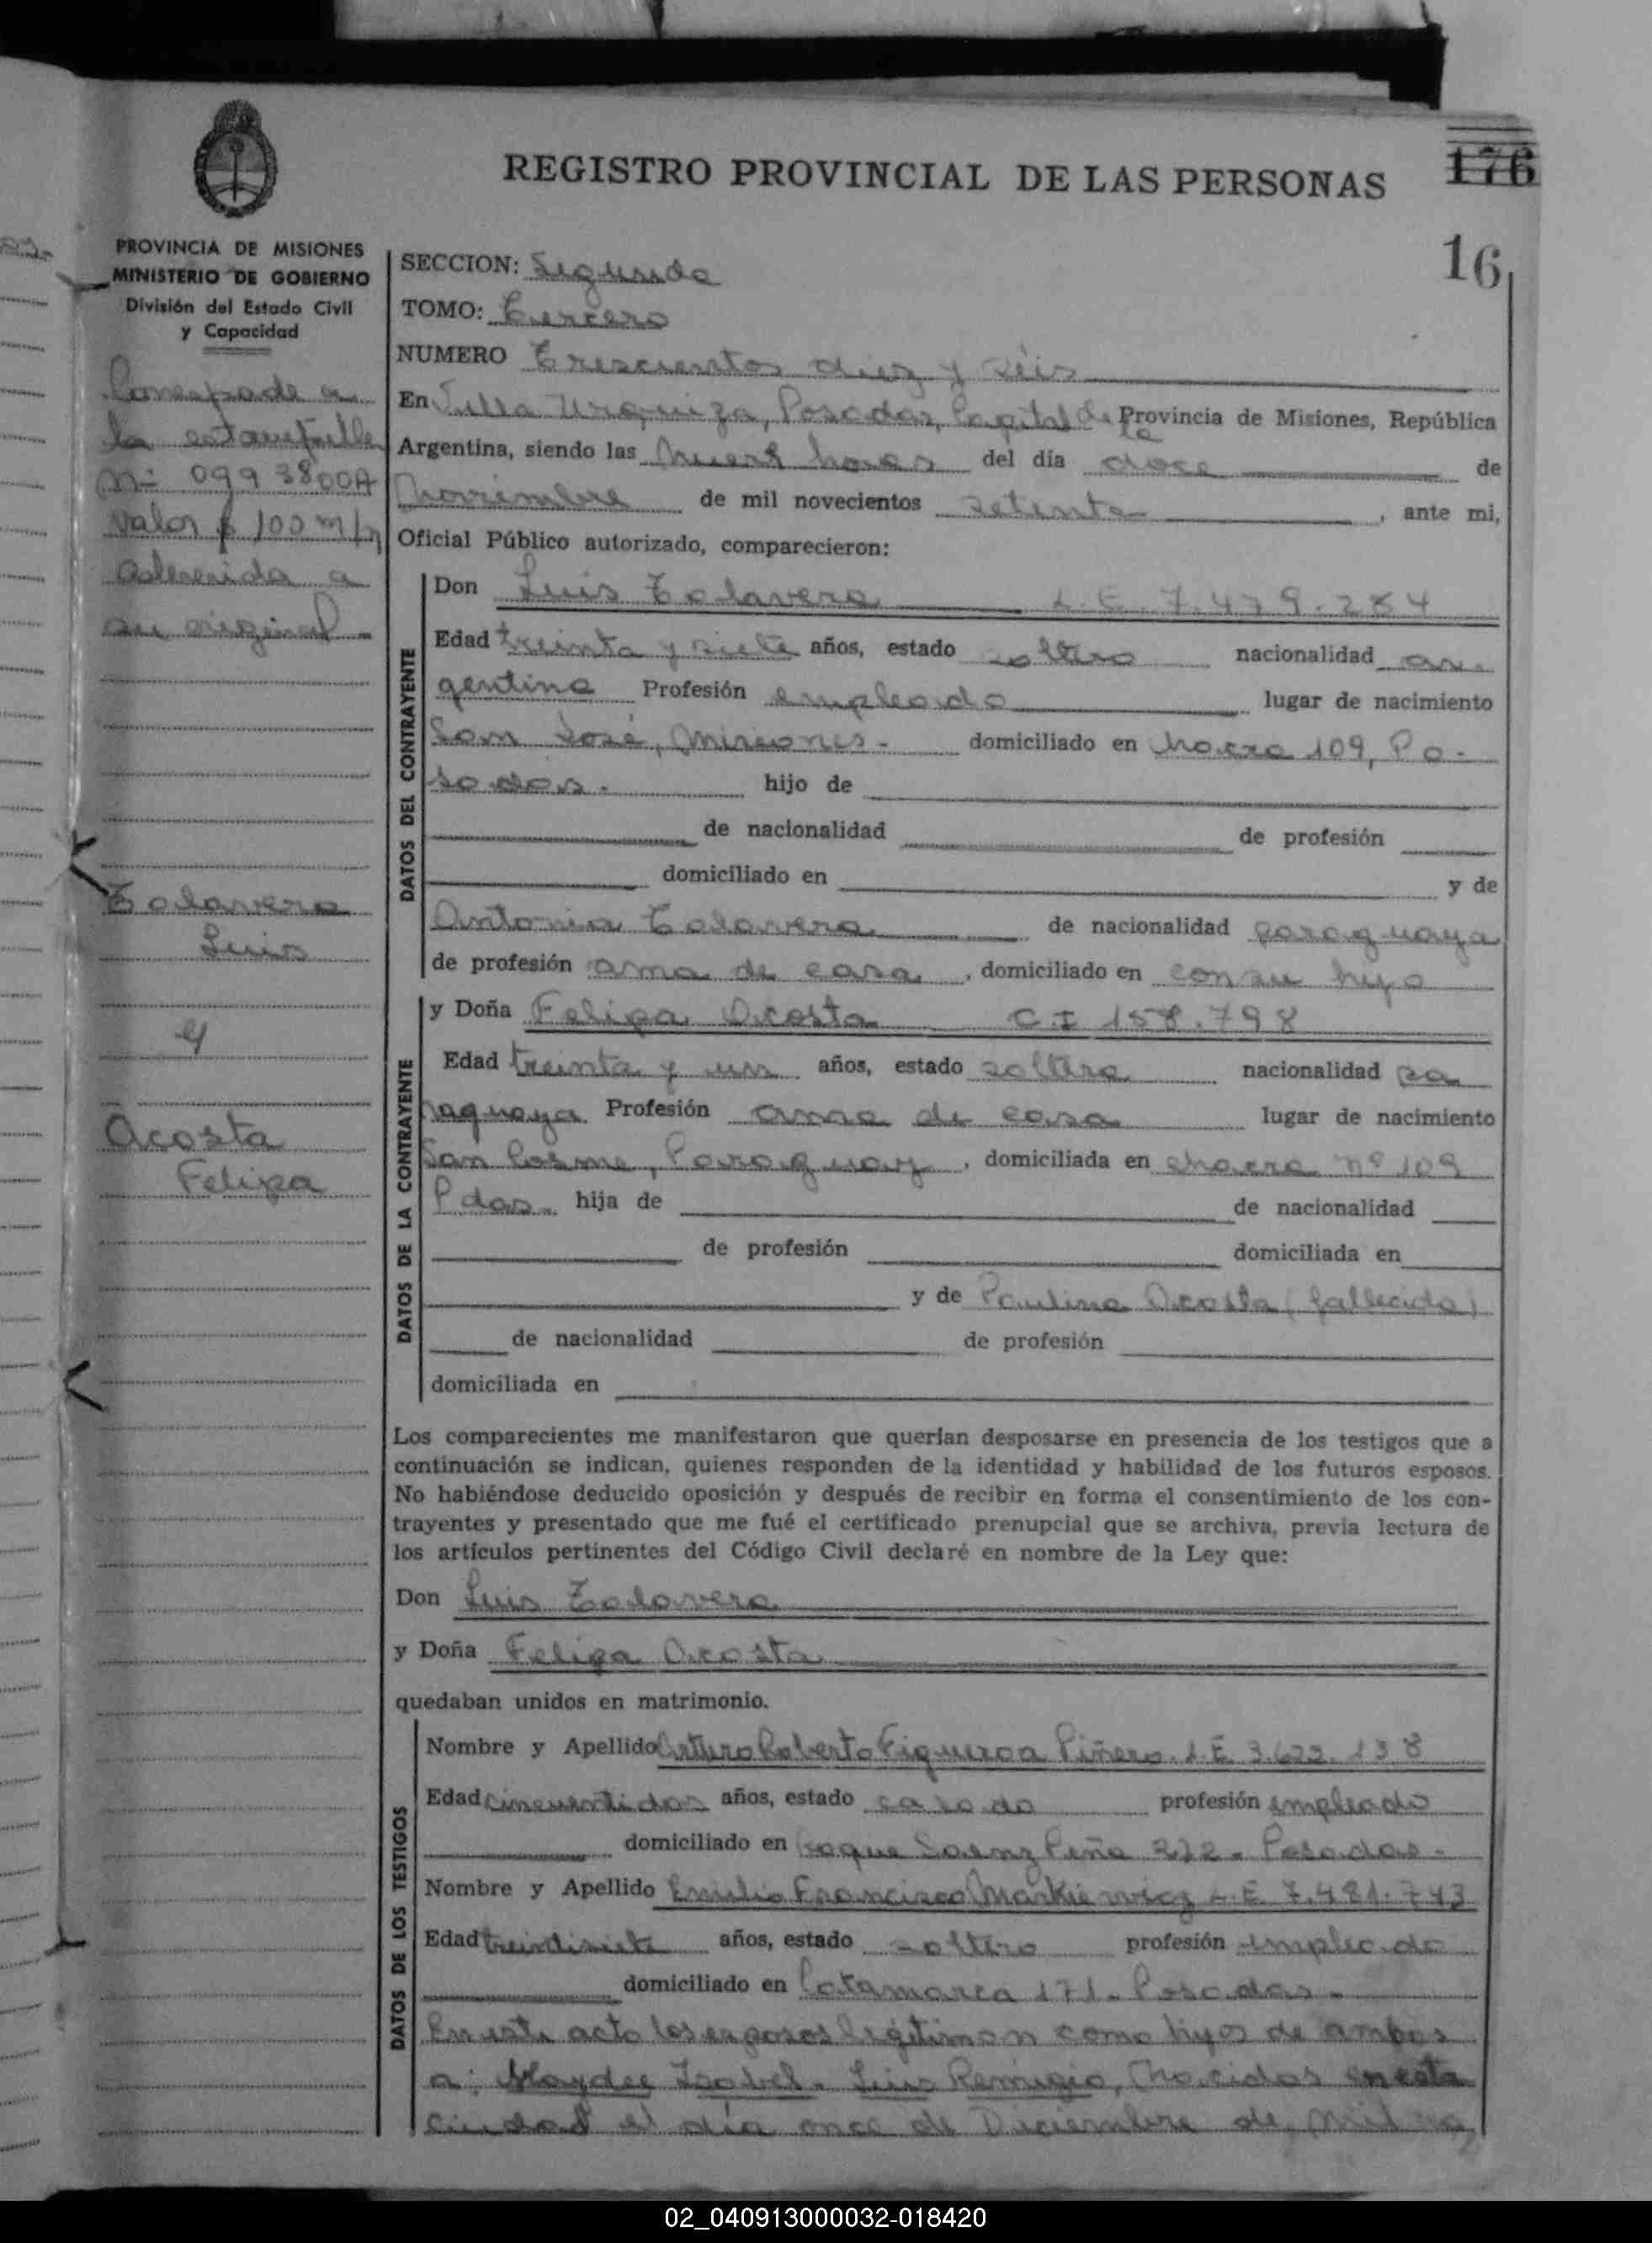 REGISTRO PROVINCIAL DE LAS PERSONAS
176
16
PROVINCIA DE MISIONES
MINISTERIO DE GOBIERNO
División del Estado Civil
y Capacidad
la
Nº 0993800A
Valor $ 100 m/n
Adherida a
su original
Talavera
Luis
y
Acosta
Felipa
SECCION: Segunda
TOMO: Tercero
NUMERO Trescientos diez y seis
En Villa Urquiza, Posadas, Capital de la Provincia de Misiones, República
Argentina, siendo las nueve horas del día doce de
Noviembre de mil novecientos setenta, ante mi,
Oficial Público autorizado, comparecieron:
DATOS DEL CONTRAYENTE
Don Luis Talavera L.E. 7.479.284
Edad treinta y siete años, estado soltero nacionalidad ar-
gentina Profesión empleado lugar de nacimiento
San José, Misiones- domiciliado en chacra 109, Po-
sadas. hijo de
de nacionalidad de profesión
domiciliado en y de
Antonia Talavera de nacionalidad paraguaya
de profesión ama de casa, domiciliado en con su hijo
DATOS DE LA CONTRAYENTE
y Doña Felipa Acosta C I 158.798
Edad treinta y un años, estado soltera nacionalidad pa
raguaya Profesión ama de casa lugar de nacimiento
San Cosme, Paraguay, domiciliada en chacra nº 109
Pdas. hija de de nacionalidad
de profesión domiciliada en
y de Paulina Acosta (fallecida)
de nacionalidad de profesión
domiciliada en
Los comparecientes me manifestaron que querían desposarse en presencia de los testigos que a
continuación se indican, quienes responden de la identidad y habilidad de los futuros esposos.
No habiéndose deducido oposición y después de recibir en forma el consentimiento de los con-
trayentes y presentado que me fué el certificado prenupcial que se archiva, previa lectura de
los artículos pertinentes del Código Civil declaré en nombre de la Ley que:
Don Luis Talavera
y Doña Felipa Acosta
quedaban unidos en matrimonio.
DATOS DE LOS TESTIGOS
Nombre y Apellido Arturo Roberto Figueroa Piñero L.E 3.622.138
Edad cincuentidos años, estado casado profesión empleado
domiciliado en Roque Saenz Peña 272. Posadas-
Nombre y Apellido Emilio Francisco Markiewicz L.E. 7.481.743
Edad treintisiete años, estado soltero profesión empleado
domiciliado en Catamarca 171. Posadas.
En este acto los esposos legitiman como hijos de ambos
a: Haydee Isabel. Luis Remigio, Nacidos en esta
ciudad el día once de Diciembre de Mil no
02_040913000032-018420